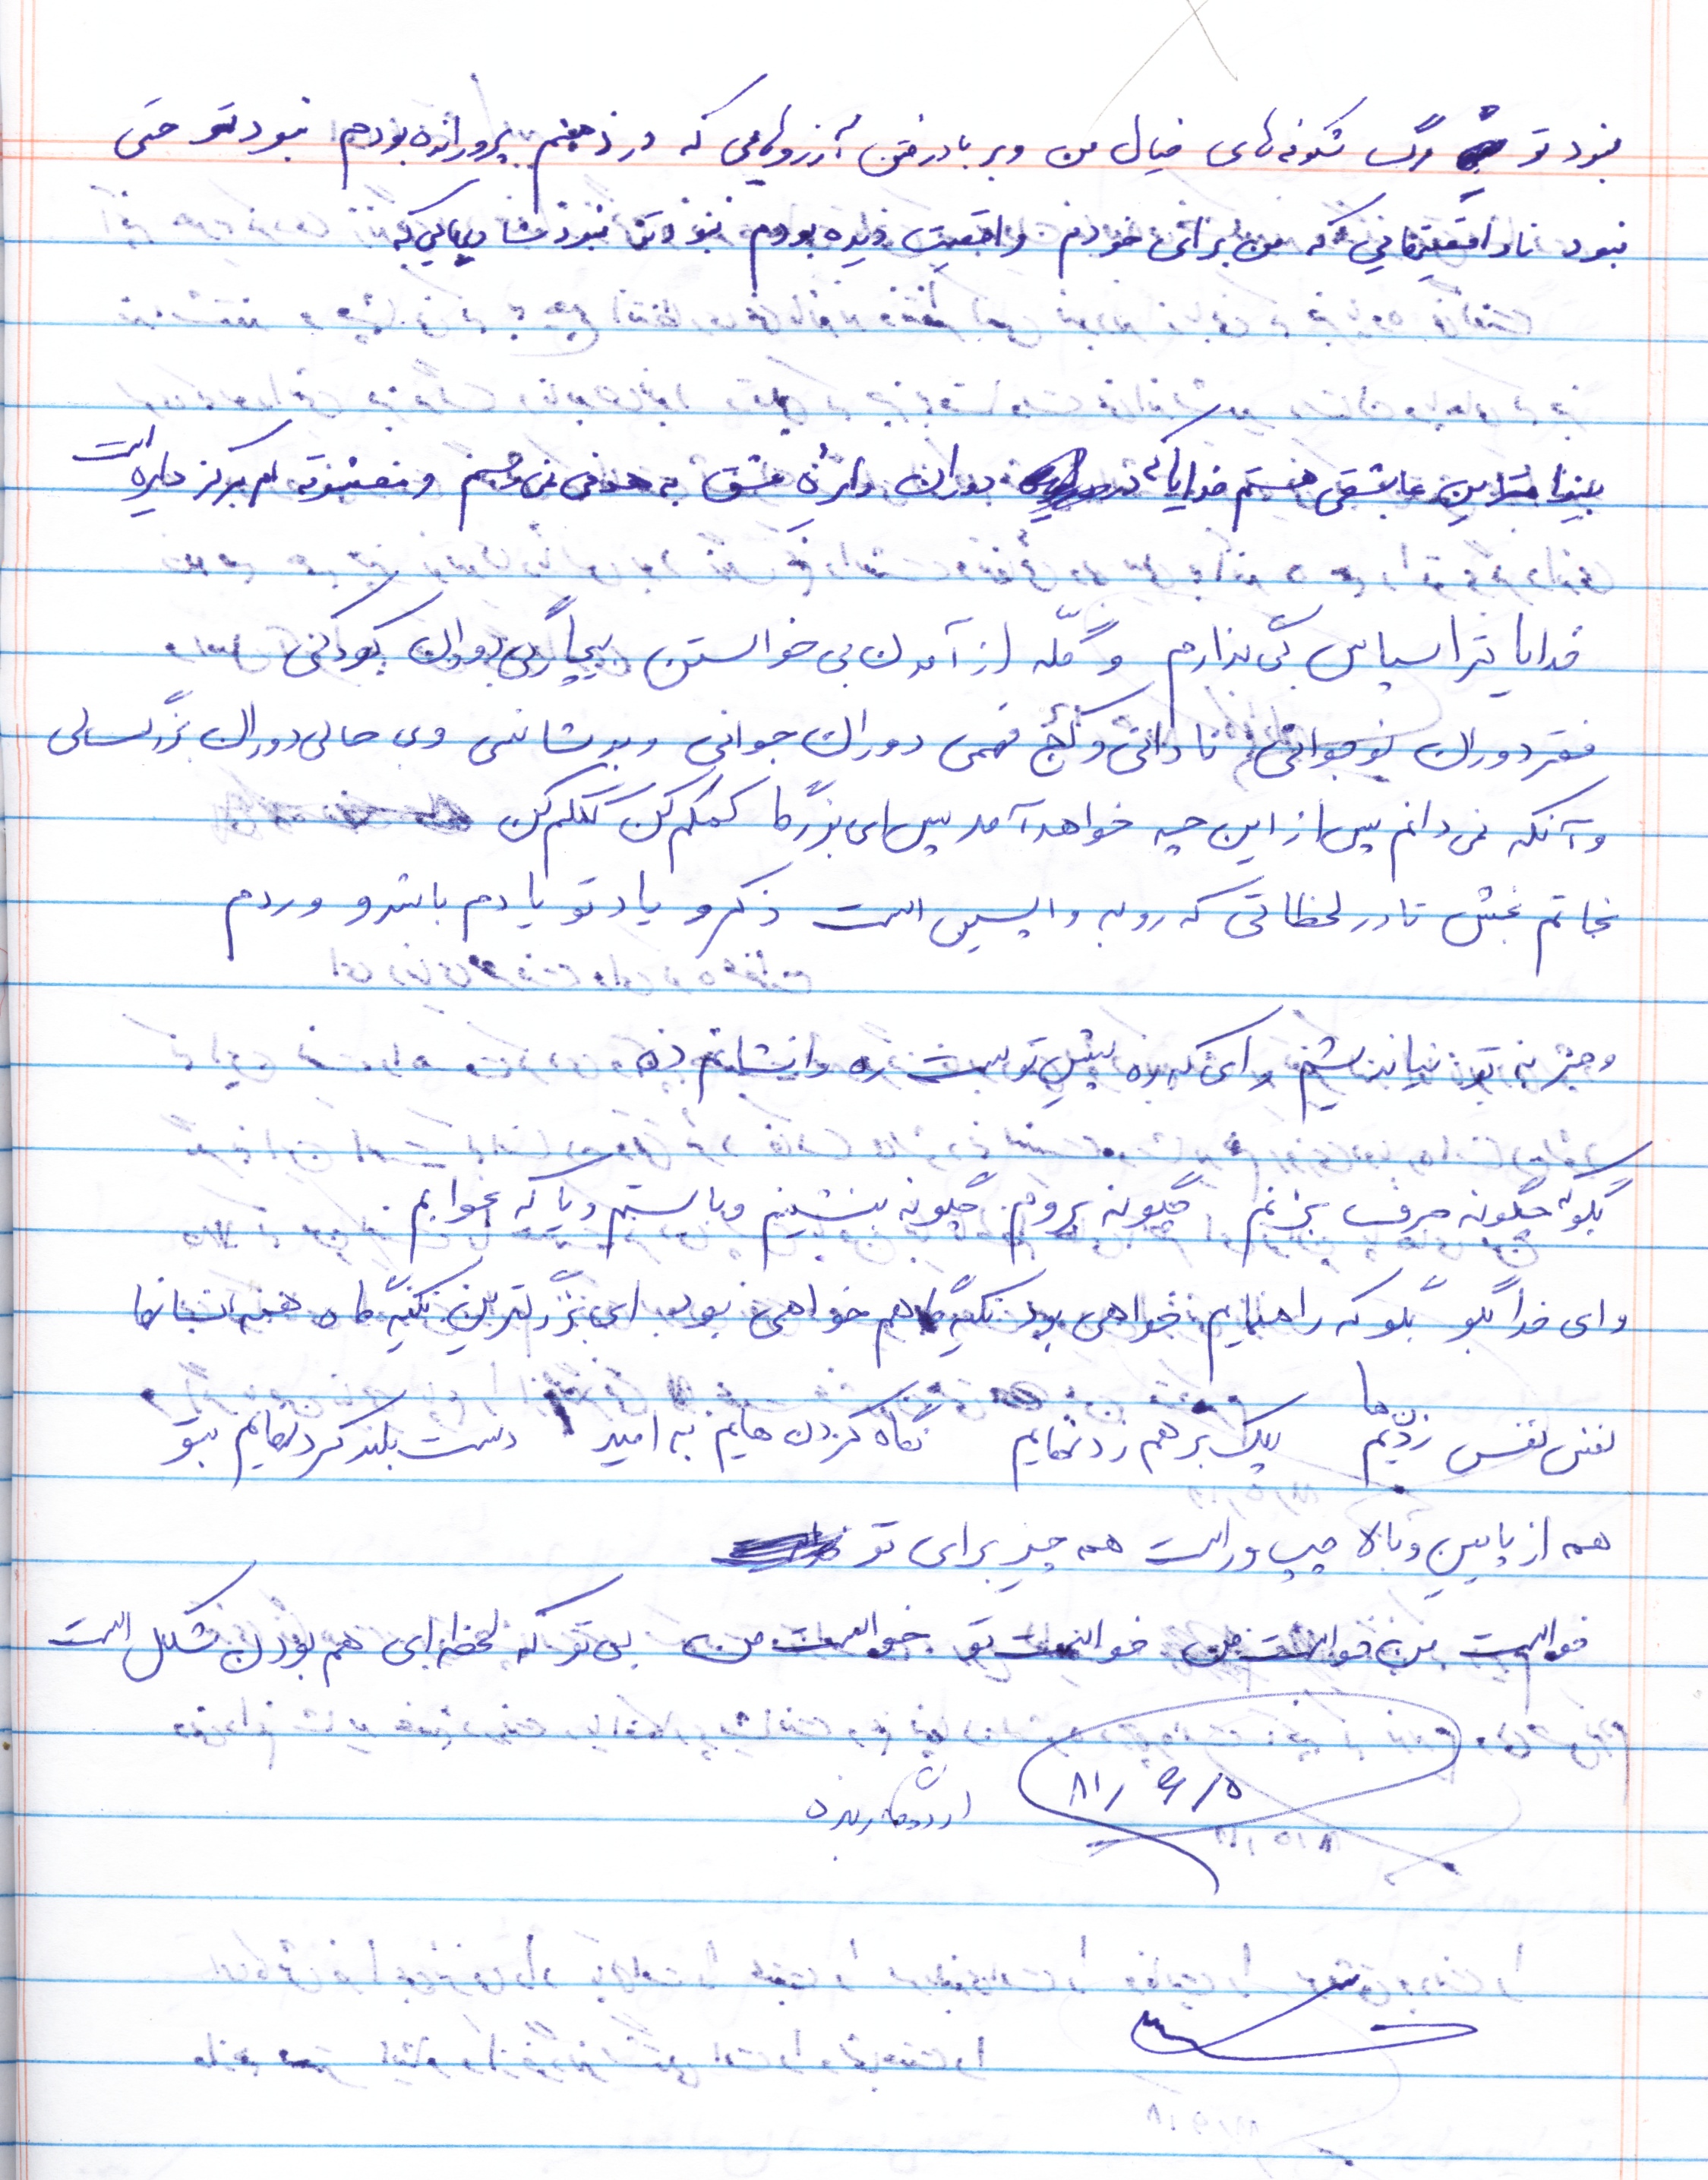 نبود تو مرگ شکوفه‌های خیال من و بر باد رفتن آرزوهایی که در ذهنم پرورانده بودم نبود تو حتی
نبود ناواقعیتهایی که من برای خودم واقعیت دیده بودم نبود تو نبود شادیهایی که
بینواترین عاشقی هستم خدایا که در دوران دایره عشق به می‌چرخم و معشوقه ام مرکز دایره است
خدایا ترا سپاس می‌گذارم و گله از آمدن بی خواستن بیچارگی دوران کودکی
فقر دوران نوجوانی نادانی و کج فهمی دوران جوانی و بدشانسی و بی حالی دوران بزرگسالی
و آنکه نمی دانم پس از این چه خواهد آمد پس ای بزرگا کمکم کن کمکم کن
نجاتم بخش تا در لحظاتی که رو به واپسین است ذکر و یاد تو یادم باشد و وردم
و جز به تو نیاندیشم و ای که ره پیش توست ره وانیشانم ده
بگو چگونه حرف بزنم چگونه بروم چگونه بنشینم و بایستم و یا که بخوابم
و ای خدا بگو بگو که راهنمایم خواهی بود تکیه گاهم خواهی بود ای بزرگترین تکیه گاه همه انسانها
نفس نفس زدنهایم پلک بر هم زدنهایم نگاه کردن هایم به امید دست بلند کردنهایم بتو
همه از پایین و بالا چپ و راست همه چیز برای تو
خواست من خواست من خواست تو خواست من بی تو که لحظه ای هم بودن مشکل است
۸۱/۶/۵